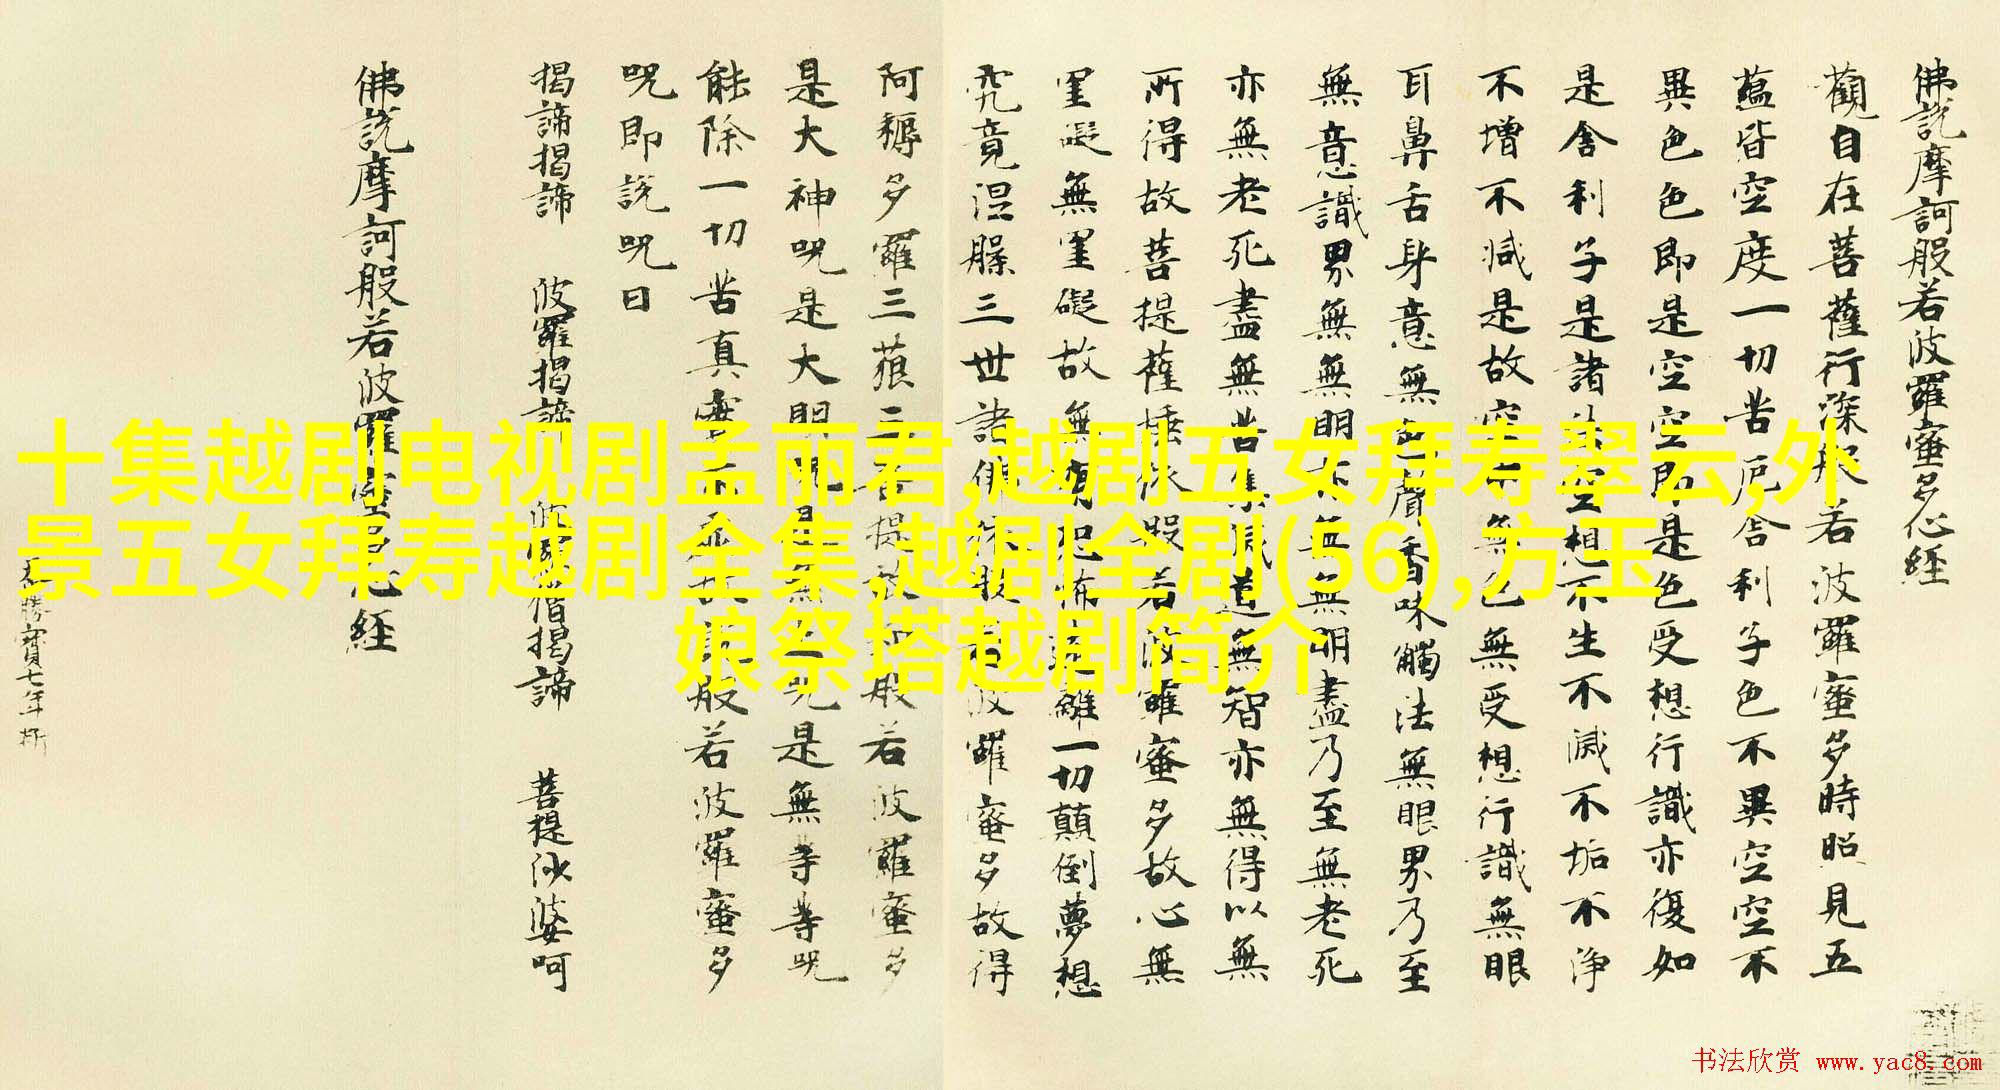 佛說摩訶般若波羅蜜多心經
觀自在菩薩行深般若波羅蜜多時照見五
蘊皆空度一切苦厄舍利子色不異空空不
異色色即是空空即是色受想行識亦復如
是舍利子是諸法空相不生不滅不垢不淨
不增不減是故空中無色無受想行識無眼
耳鼻舌身意無色聲香味觸法無眼界乃至
無意識界無無明亦無無明盡乃至無老死
亦無老死盡無苦集滅道無智亦無得以無
所得故菩提薩埵依般若波羅蜜多故心無
罣礙無罣礙故無有恐怖遠離一切顛倒夢想
究竟涅槃三世諸佛依般若波羅蜜多故得
阿耨多羅三藐三菩提故知般若波羅蜜多
是大神呪是大明呪是無上呪是無等等呪
能除一切苦真實不虛故說般若波羅蜜多
呪即說呪曰
揭諦揭諦 波羅揭諦 波羅僧揭諦 菩提娑婆呵
佛說摩訶般若波羅蜜多心經
勝寶七年
十集越剧电视剧孟丽君,越剧五女拜寿翠云,外
景五女拜寿越剧全集,越剧全剧(56),方玉
娘祭塔越剧简介
书法欣赏 www.yac8.com